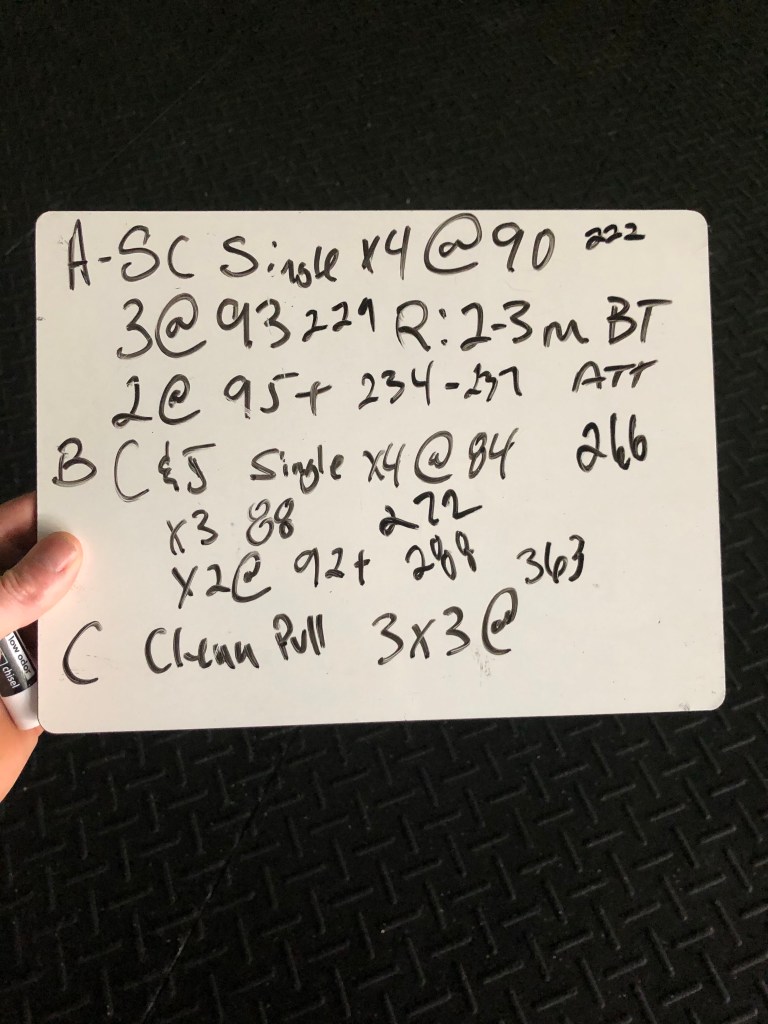 A-SC Single x4 @ 90 222
3@ 93 229 R: 2-3m BT
2@ 95+ 234-237 ATT
B C&J Single x4 @ 84 266
x3 88 272
x2@ 92+ 288 363
C Clean Pull 3x3@
low odor
chisel